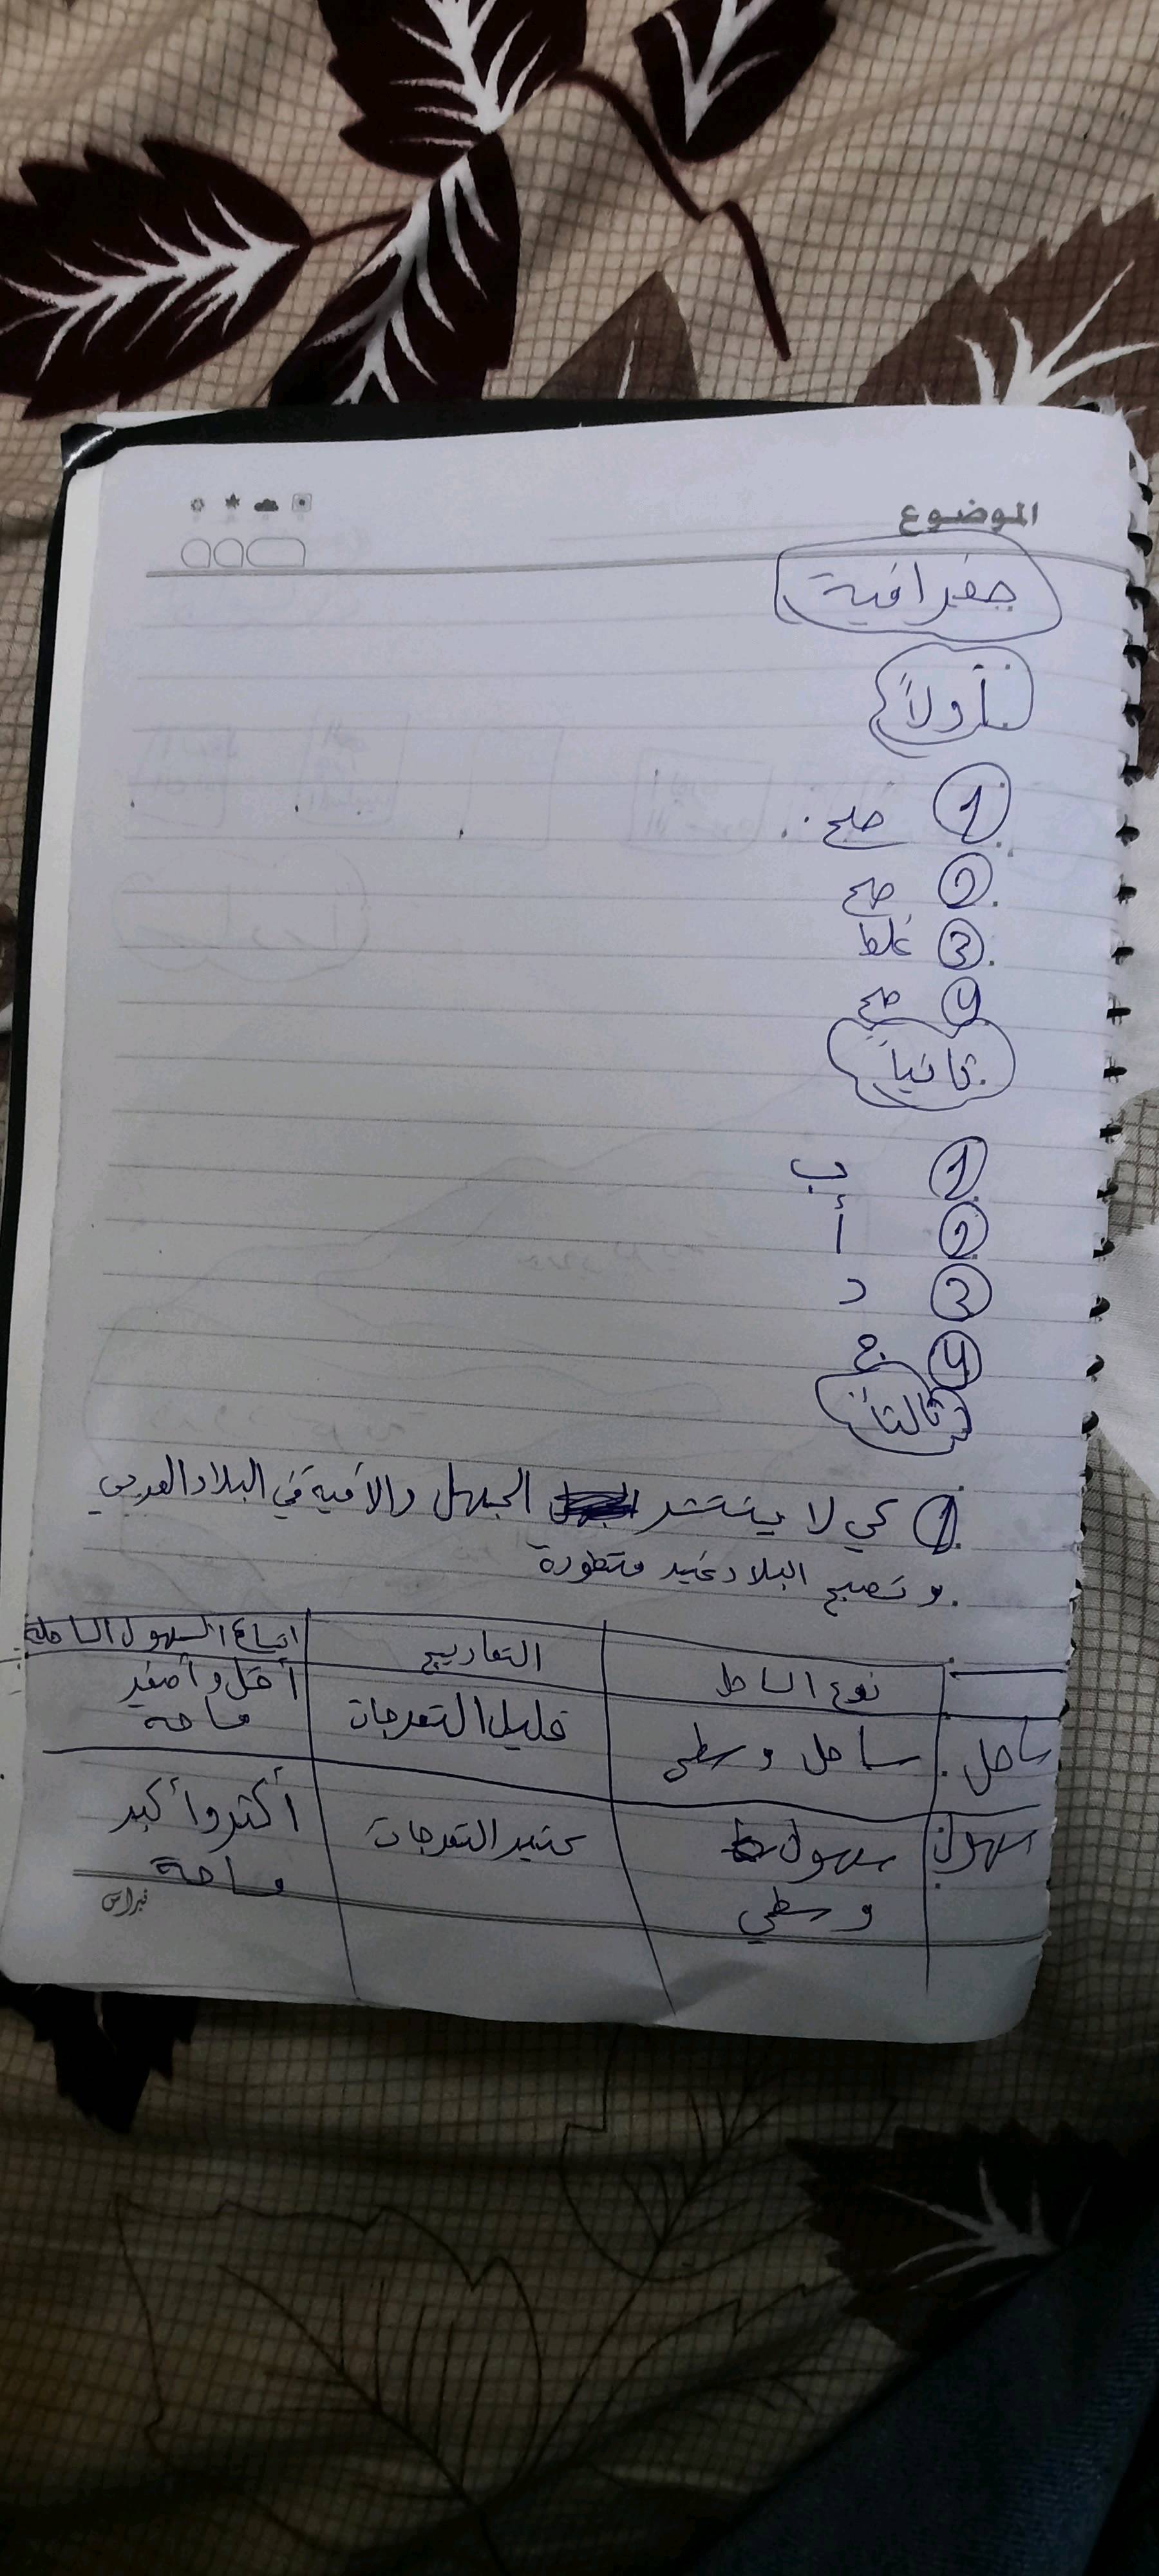 الموضوع
جغرافية
أولاً
1 صح
2 صح
3 غلط
4 صح
ثانياً
1 ب
2 أ
3 د
4 ج
ثالثاً
1 كي لا ينتشر الجهل والأمية في البلاد العربي
و تصبح البلاد غير متطورة
نوع الساحل التعاريج اتساع السهول الساحلة
ساحل ساحل وسطي قليل التعرجات أقل وأصغر
مساحة
سهول سهول كثير التعرجات أكثر وأكبر
وسطي مساحة
نبراس